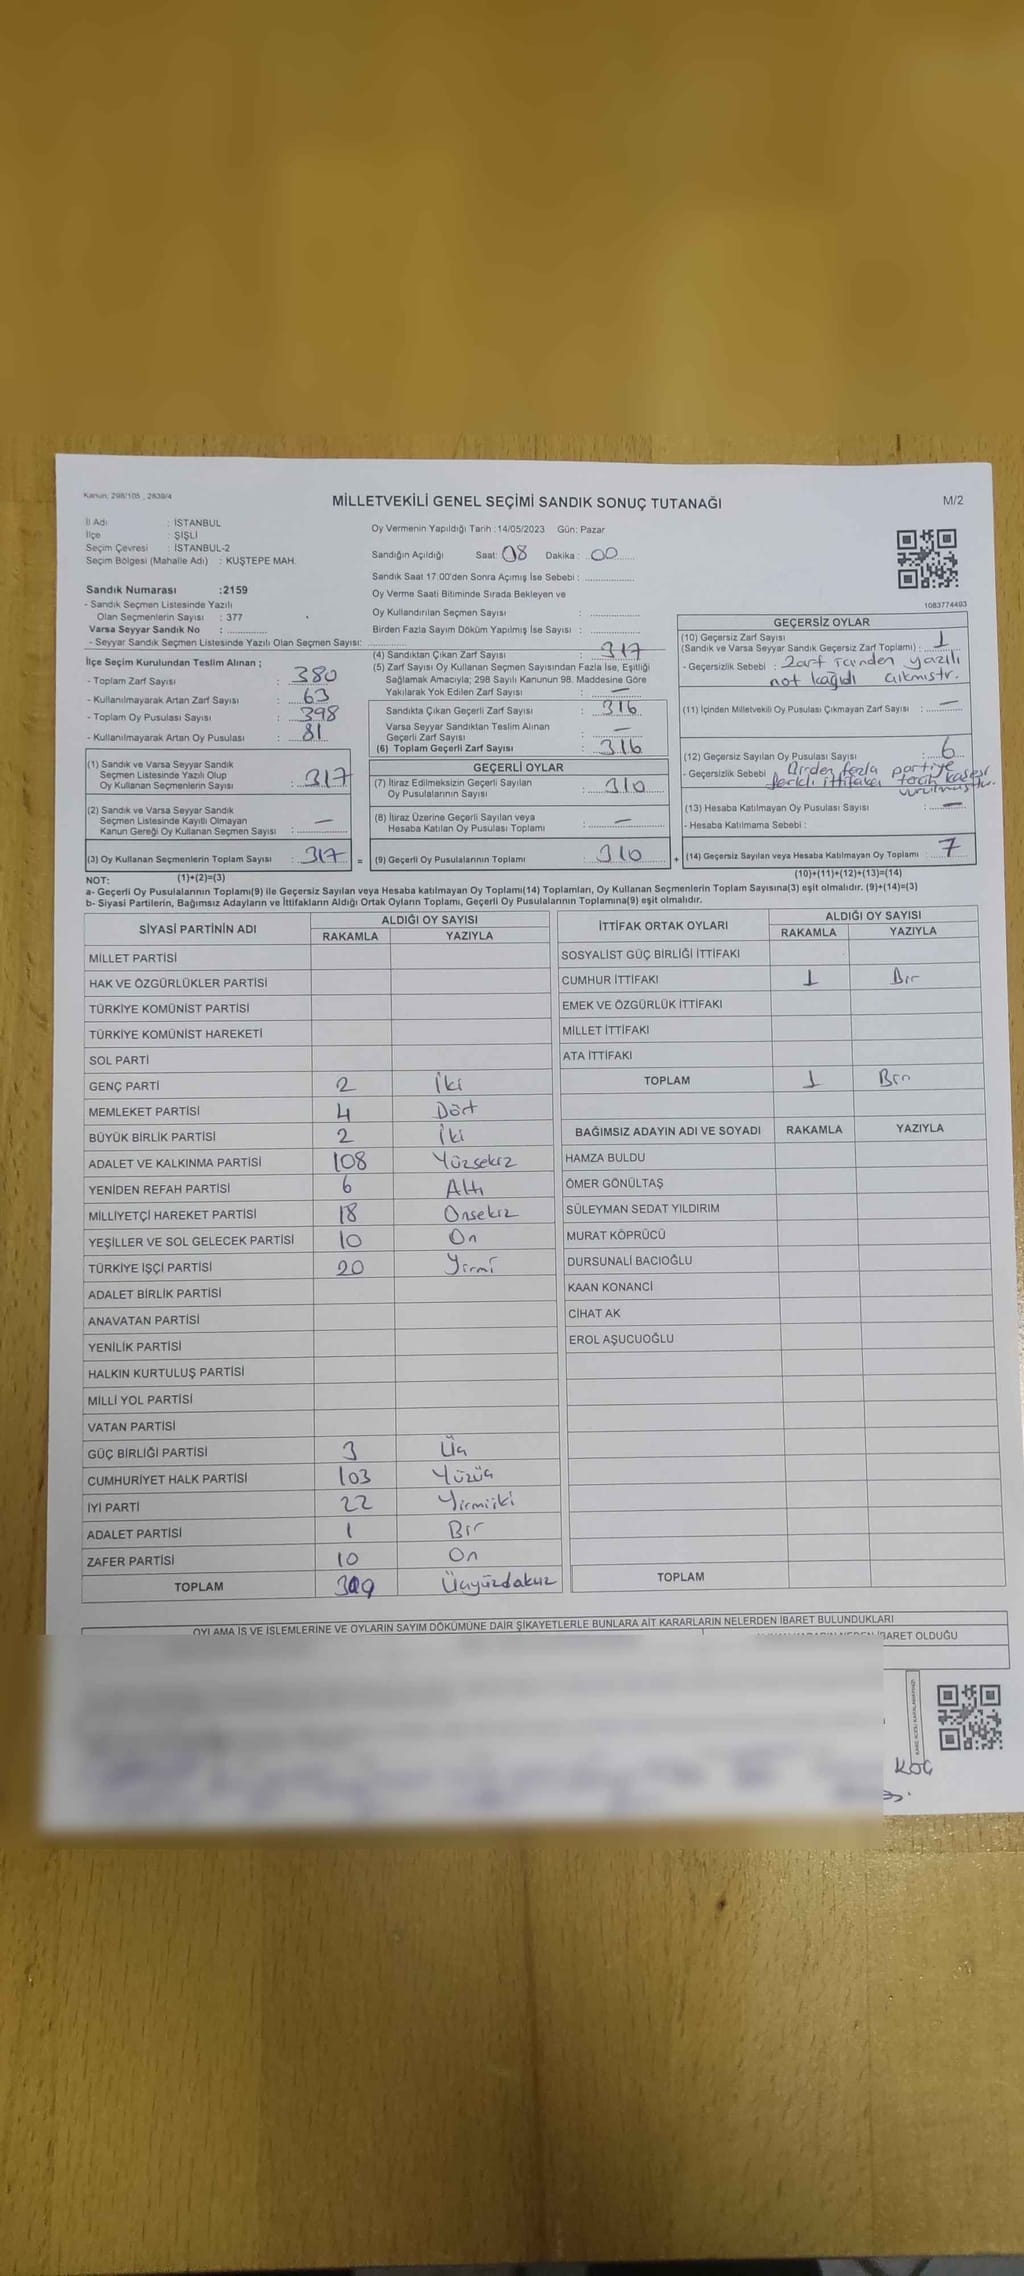 Kanun; 298/105 , 2839/4
MİLLETVEKİLİ GENEL SEÇİMİ SANDIK SONUÇ TUTANAĞI
M/2
İl Adı : İSTANBUL
İlçe : ŞİŞLİ
Seçim Çevresi : İSTANBUL-2
Seçim Bölgesi (Mahalle Adı) : KUŞTEPE MAH.
Sandık Numarası :2159
- Sandık Seçmen Listesinde Yazılı
Olan Seçmenlerin Sayısı : 377
Varsa Seyyar Sandık No :
- Seyyar Sandık Seçmen Listesinde Yazılı Olan Seçmen Sayısı:
Oy Vermenin Yapıldığı Tarih :14/05/2023 Gün: Pazar
Sandığın Açıldığı Saat: 08 Dakika : 00
Sandık Saat 17.00'den Sonra Açımış İse Sebebi :
Oy Verme Saati Bitiminde Sırada Bekleyen ve
Oy Kullandırılan Seçmen Sayısı :
Birden Fazla Sayım Döküm Yapılmış İse Sayısı :
1083774403
İlçe Seçim Kurulundan Teslim Alınan ;
- Toplam Zarf Sayısı : 380
- Kullanılmayarak Artan Zarf Sayısı : 63
- Toplam Oy Pusulası Sayısı : 398
- Kullanılmayarak Artan Oy Pusulası : 81
(1) Sandık ve Varsa Seyyar Sandık
Seçmen Listesinde Yazılı Olup
Oy Kullanan Seçmenlerin Sayısı : 317
(2) Sandık ve Varsa Seyyar Sandık
Seçmen Listesinde Kayıtlı Olmayan
Kanun Gereği Oy Kullanan Seçmen Sayısı : —
(3) Oy Kullanan Seçmenlerin Toplam Sayısı : 317 =
(4) Sandıktan Çıkan Zarf Sayısı : 317
(5) Zarf Sayısı Oy Kullanan Seçmen Sayısından Fazla İse, Eşitliği
Sağlamak Amacıyla; 298 Sayılı Kanunun 98. Maddesine Göre
Yakılarak Yok Edilen Zarf Sayısı : —
Sandıkta Çıkan Geçerli Zarf Sayısı : 316
Varsa Seyyar Sandıktan Teslim Alınan
Geçerli Zarf Sayısı : —
(6) Toplam Geçerli Zarf Sayısı : 316
GEÇERLİ OYLAR
(7) İtiraz Edilmeksizin Geçerli Sayılan
Oy Pusulalarının Sayısı : 310
(8) İtiraz Üzerine Geçerli Sayılan veya
Hesaba Katılan Oy Pusulası Toplamı : —
(9) Geçerli Oy Pusulalarının Toplamı : 310 +
GEÇERSİZ OYLAR
(10) Geçersiz Zarf Sayısı
(Sandık ve Varsa Seyyar Sandık Geçersiz Zarf Toplamı) : 1
- Geçersizlik Sebebi : Zarf içinden yazılı
not kağıdı çıkmıştır.
(11) İçinden Milletvekili Oy Pusulası Çıkmayan Zarf Sayısı : —
(12) Geçersiz Sayılan Oy Pusulası Sayısı : 6
- Geçersizlik Sebebi : Birden fazla partiye
farklı ittifaka tercih kaşesi
vurulmuştur.
(13) Hesaba Katılmayan Oy Pusulası Sayısı : —
- Hesaba Katılmama Sebebi :
(14) Geçersiz Sayılan veya Hesaba Katılmayan Oy Toplamı : 7
NOT: (1)+(2)=(3)
(10)+(11)+(12)+(13)=(14)
a- Geçerli Oy Pusulalarının Toplamı(9) ile Geçersiz Sayılan veya Hesaba katılmayan Oy Toplamı(14) Toplamları, Oy Kullanan Seçmenlerin Toplam Sayısına(3) eşit olmalıdır. (9)+(14)=(3)
b- Siyasi Partilerin, Bağımsız Adayların ve İttifakların Aldığı Ortak Oyların Toplamı, Geçerli Oy Pusulalarının Toplamına(9) eşit olmalıdır.
SİYASİ PARTİNİN ADI ALDIĞI OY SAYISI
RAKAMLA YAZIYLA
MİLLET PARTİSİ
HAK VE ÖZGÜRLÜKLER PARTİSİ
TÜRKİYE KOMÜNİST PARTİSİ
TÜRKİYE KOMÜNİST HAREKETİ
SOL PARTİ
GENÇ PARTİ 2 İki
MEMLEKET PARTİSİ 4 Dört
BÜYÜK BİRLİK PARTİSİ 2 İki
ADALET VE KALKINMA PARTİSİ 108 Yüzsekiz
YENİDEN REFAH PARTİSİ 6 Altı
MİLLİYETÇİ HAREKET PARTİSİ 18 Onsekiz
YEŞİLLER VE SOL GELECEK PARTİSİ 10 On
TÜRKİYE İŞÇİ PARTİSİ 20 Yirmi
ADALET BİRLİK PARTİSİ
ANAVATAN PARTİSİ
YENİLİK PARTİSİ
HALKIN KURTULUŞ PARTİSİ
MİLLİ YOL PARTİSİ
VATAN PARTİSİ
GÜÇ BİRLİĞİ PARTİSİ 3 Üç
CUMHURİYET HALK PARTİSİ 103 Yüzüç
İYİ PARTİ 22 Yirmiiki
ADALET PARTİSİ 1 Bir
ZAFER PARTİSİ 10 On
TOPLAM 309 Üçyüzdokuz
İTTİFAK ORTAK OYLARI ALDIĞI OY SAYISI
RAKAMLA YAZIYLA
SOSYALİST GÜÇ BİRLİĞİ İTTİFAKI
CUMHUR İTTİFAKI 1 Bir
EMEK VE ÖZGÜRLÜK İTTİFAKI
MİLLET İTTİFAKI
ATA İTTİFAKI
TOPLAM 1 Bir
BAĞIMSIZ ADAYIN ADI VE SOYADI RAKAMLA YAZIYLA
HAMZA BULDU
ÖMER GÖNÜLTAŞ
SÜLEYMAN SEDAT YILDIRIM
MURAT KÖPRÜCÜ
DURSUNALİ BACIOĞLU
KAAN KONANCİ
CİHAT AK
EROL AŞUCUOĞLU
TOPLAM
OYLAMA İŞ VE İŞLEMLERİNE VE OYLARIN SAYIM DÖKÜMÜNE DAİR ŞİKAYETLERLE BUNLARA AİT KARARLARIN NELERDEN İBARET BULUNDUKLARI
İBARET OLDUĞU
KOÇ